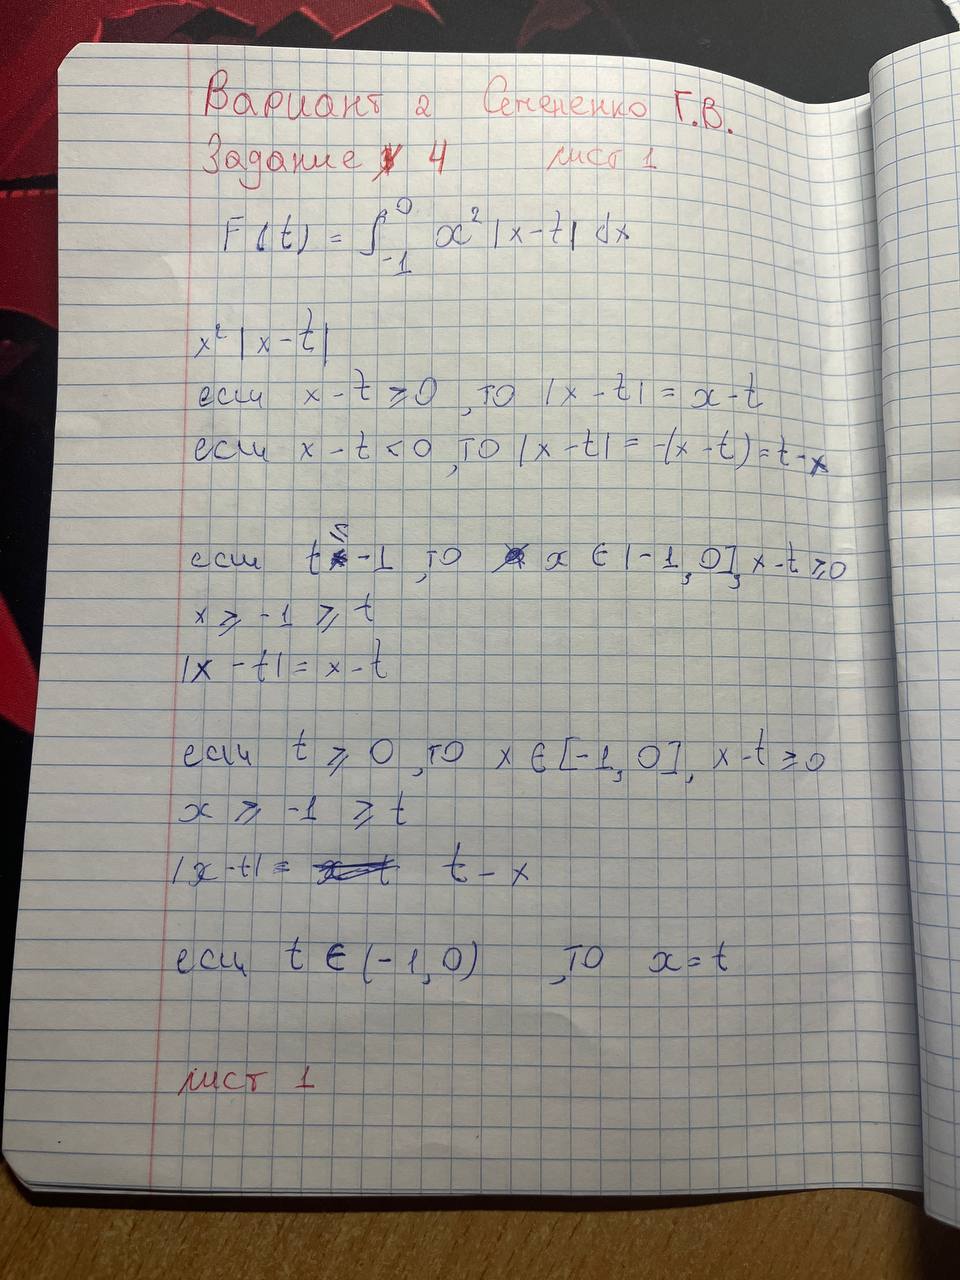 Вариант 2 Семененко Г.В.
Задание 4 лист 1
F(t) = ∫₋₁⁰ x² |x-t| dx
x² |x-t|
если x - t ≥ 0, то |x-t| = x-t
если x - t < 0, то |x-t| = -(x-t) = t-x
если t ≤ -1, то x ∈ [-1, 0], x-t ≥ 0
x ≥ -1 ≥ t
|x-t| = x-t
если t ≥ 0, то x ∈ [-1, 0], x-t ≥ 0
x ≥ -1 ≥ t
|x-t| = t-x
если t ∈ (-1, 0), то x = t
лист 1